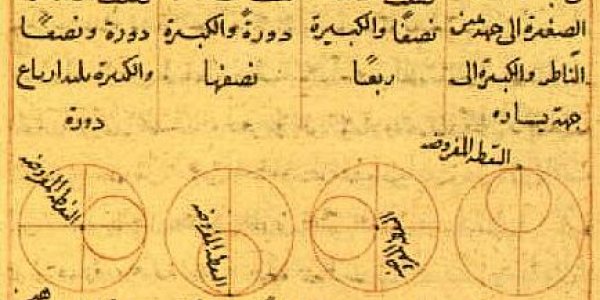 الصغيرة الى جهة يمين
الناظر والكبيرة الى
جهة يساره
نصفًا والكبيرة
ربعًا
دورةً والكبيرة
نصفها
دورة ونصفًا
والكبيرة ثلثة ارباع
دورة
النقطة المفروضة
النقطة المفروضة
النقطة المفروضة